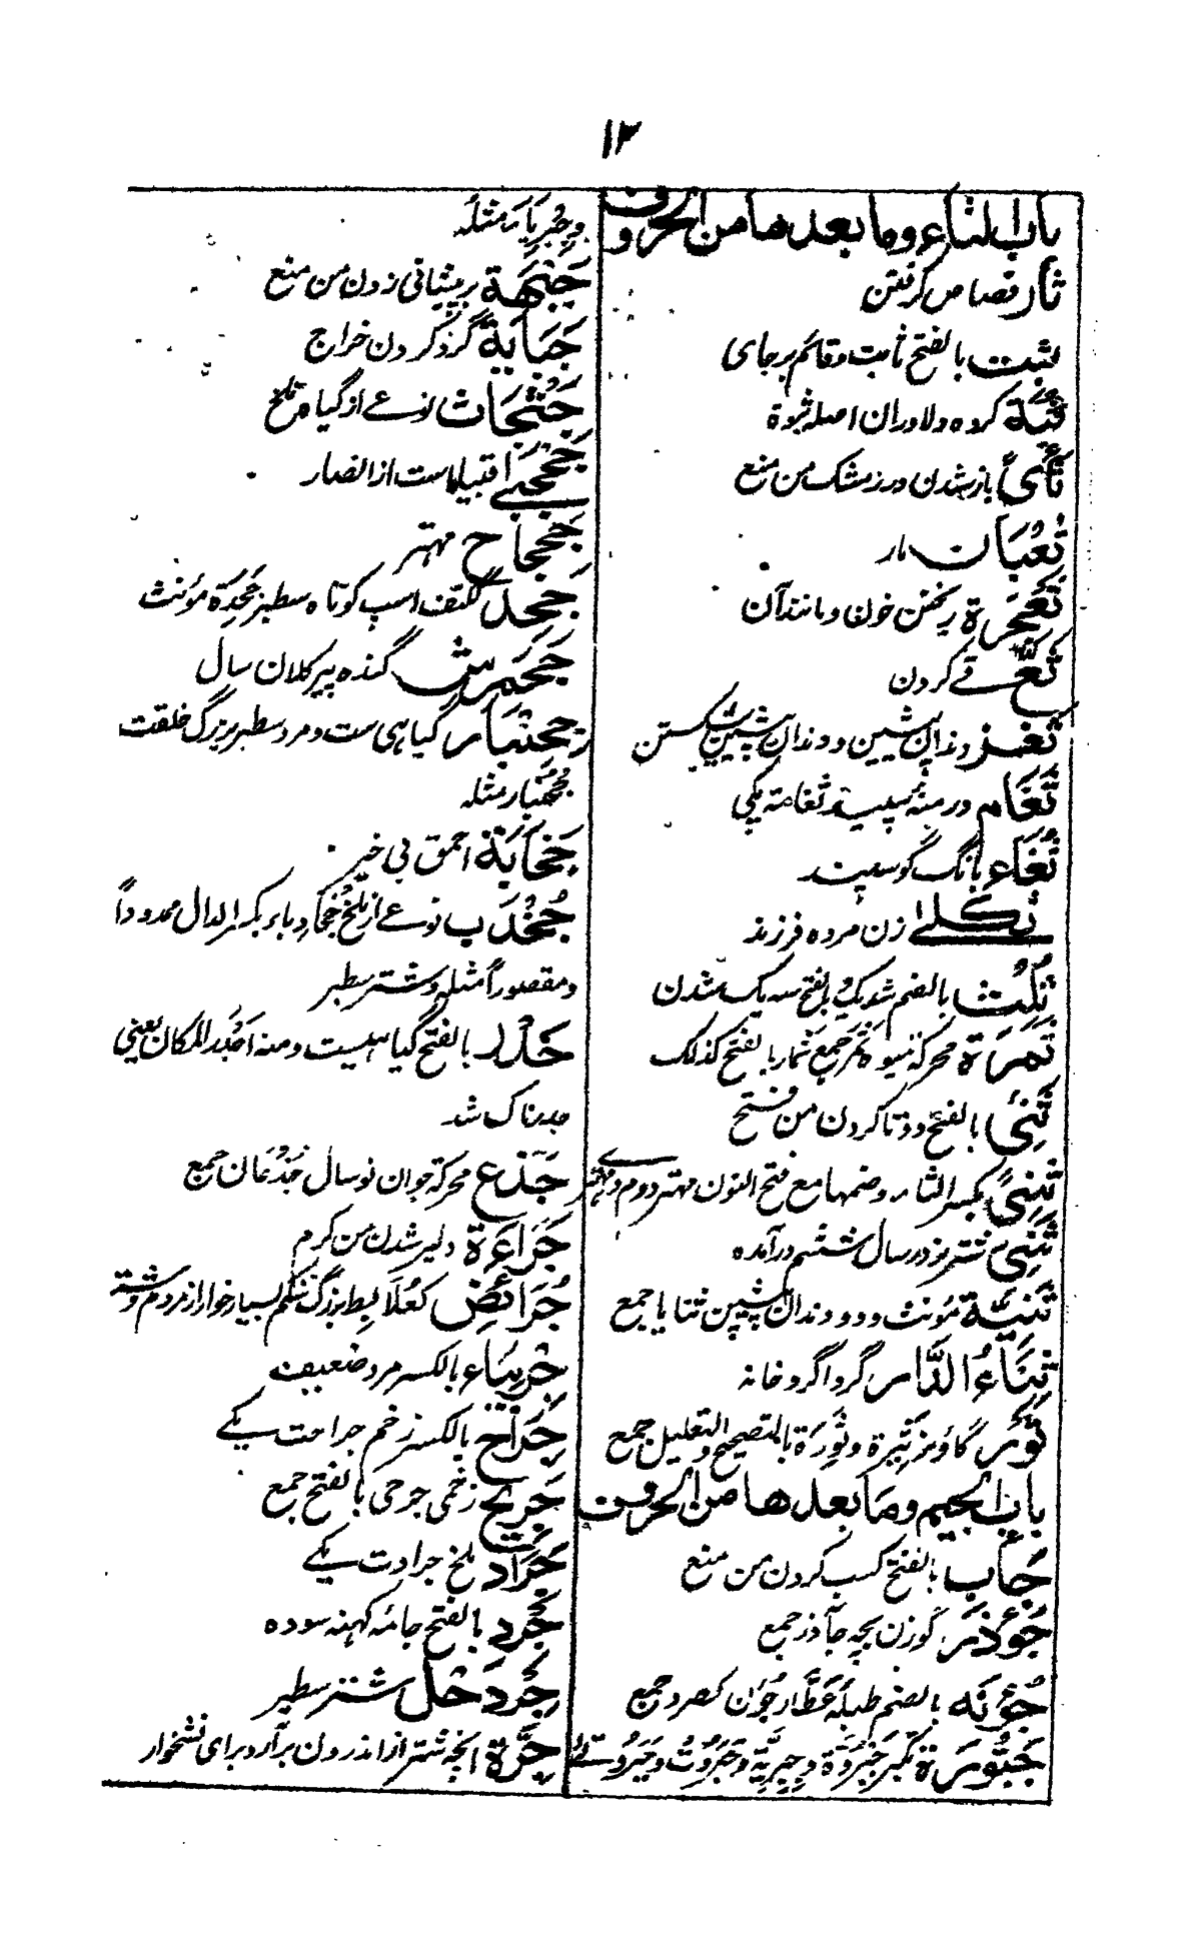 ۱۳
باب الثاء وما بعدها من الحروف
ثأر قصاص گرفتن
ثبت بالفتح ثابت و قائم بر جای
ثُبَة گروه دلاوران اصله ثبوة
ثَأْیً باز شدن درز مشک من منع
ثُعْبَان مار
ریختن خون و مانند آن
ثَعّ قے کردن
ثغر دندان پیشین و دندان پیشین شکستن
ثَغَام درمنه سپید ثغامة یکی
ثُغَاء بانگ گوسپند
ثکلی زن مرده فرزند
ثُلُث بالضم سه یک و بالفتح سه یک ستدن
ثَمَرَة محرکة میوه ثمر جمع ثمار بالفتح کذلک
ثَنْی بالفتح دو تا کردن من فتح
ثِنیً بکسر الثاء و ضمها مع فتح النون مهتر دوم
ثَنِیّ شتر نر در سال ششم درآمده
ثَنِیَّة مؤنث و دو دندان پیشین ثنایا جمع
ثِنَاءُ الدَّار گرداگرد خانه
ثَوْر گاو نر ثیرة و ثِوَرَة بالتصحیح والتعلیل جمع
باب الجیم وما بعدها من الحروف
جأب بالفتح کسب کردن من منع
جُؤذَر گوزن بچه جآذر جمع
جُؤنَه بالضم طبلهٔ عَطَّار جُؤَن کصرد جمع
جَبُّورَة تکبر جَبْرُوَّة و جِبْرِیَّة و جَبَرُوت
و جِبْرِیَاء مثله
جَبْهَة بر پیشانی زدن من منع
جِبَایَة گرد کردن خراج
جَثْجَاث نوعے از گیاه تلخ
جَحْجَبیٰ قبیله است از انصار
جَحْجَاح مهتر
ککتف اسپ کوتاه سطبر مؤنث
جَحْمَرِش گنده پیر کلان سال
جِحِنْبَار گیاهی ست و مرد سطبر بزرگ خلقت
جُحُنْبار مثله
جَخَابَة احمق بی خیر
جُخْدَب نوعے از ملخ جُخَادِباء بکسر الدال ممدوداً
و مقصوراً مثله و شتر سطبر
جَدْر بالفتح گیاهیست و منه اَجْدَر المکان یعنی
شد
جَذَع محرکة جوان نوسال جُذْعَان جمع
جَرَاءَة دلیر شدن من کرم
جُرَائِض کعُلَابِط بزرگ شکم بسیار خوار از مردم و شتر
جِرْبِیَاء بالکسر مرد ضعیف
جِرَاح بالکسر زخم جراحت یکے
جَرِیح زخمی جرحی بالفتح جمع
جَرَاد ملخ جرادت یکے
جَرْد بالفتح جامهٔ کهنه سوده
جِرْدَحْل شتر سطبر
جِرَّة انچه شتر از اندرون برآرد برای نشخوار